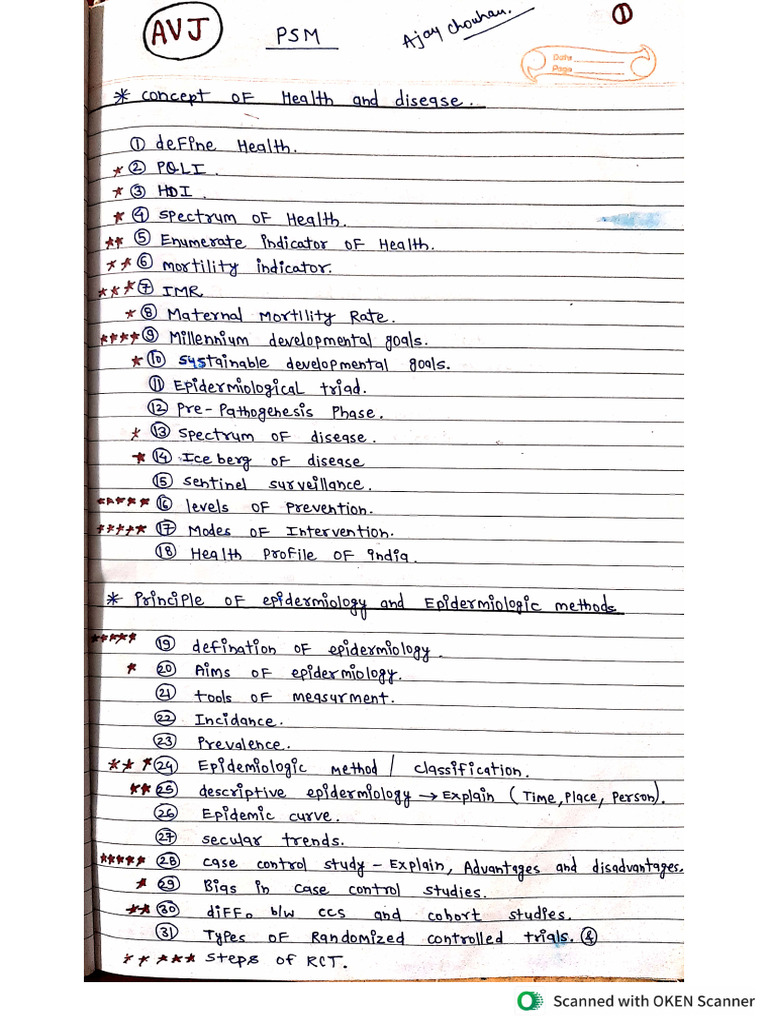 AVJ PSM Ajay Chouhan. ①
Date
Page
* Concept OF Health and disease.
① deFine Health.
* ② PQLI.
* ③ HDI.
* ④ Spectrum OF Health.
** ⑤ Enumerate indicator OF Health.
** ⑥ mortility indicator.
*** ⑦ IMR
* ⑧ Maternal Mortility Rate.
**** ⑨ Millennium developmental goals.
* ⑩ Sustainable developmental goals.
⑪ Epidermiological triad.
⑫ Pre-Pathogenesis Phase.
* ⑬ Spectrum OF disease.
* ⑭ Ice berg OF disease
⑮ Sentinel surveillance.
***** ⑯ levels OF Prevention.
***** ⑰ Modes OF Intervention.
⑱ Health ProFile OF india.
* Principle OF epidermiology and Epidermiologic methods
***** ⑲ defination OF epidermiology.
* ⑳ Aims OF epidermiology.
㉑ tools OF measurment.
㉒ Incidance.
㉓ Prevalence.
*** ㉔ Epidemiologic method / classification.
** ㉕ descriptive epidermiology → Explain (Time, Place, Person).
㉖ Epidemic curve.
㉗ secular trends.
***** ㉘ case control study - Explain, Advantages and disadvantages.
* ㉙ Bias in case control studies.
** ㉚ diFF. b/w ccs and cohort studies.
㉛ Types OF Randomized controlled trials. &
***** steps OF RCT.
Scanned with OKEN Scanner